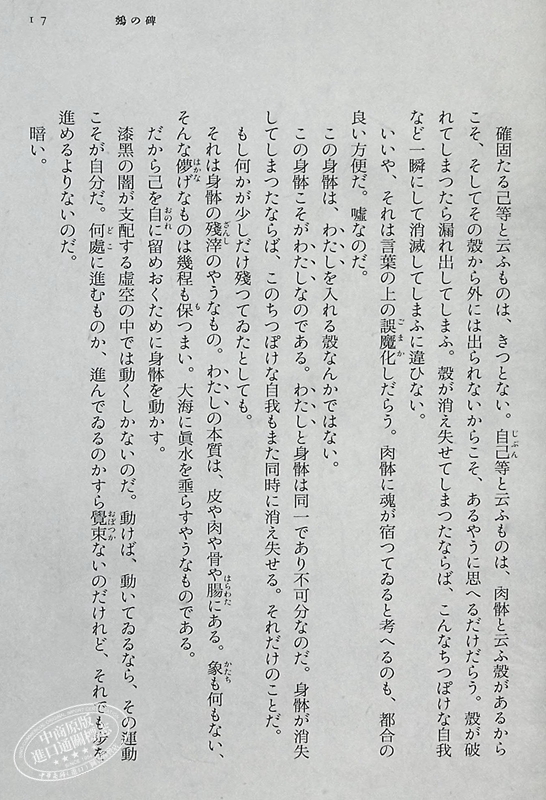 17
鵼の碑
確固たる己等と云ふものは、きつとない。自己等と云ふものは、肉骵と云ふ殻があるから
こそ、そしてその殻から外には出られないからこそ、あるやうに思へるだけだらう。殻が破
れてしまつたら漏れ出してしまふ。殻が消え失せてしまつたならば、こんなちつぽけな自我
など一瞬にして消滅してしまふに違ひない。
いいや、それは言葉の上の誤魔化しだらう。肉骵に魂が宿つてゐると考へるのも、都合の
良い方便だ。嘘なのだ。
この身骵は、わたしを入れる殻なんかではない。
この身骵こそがわたしなのである。わたしと身骵は同一であり不可分なのだ。身骵が消失
してしまつたならば、このちつぽけな自我もまた同時に消え失せる。それだけのことだ。
もし何かが少しだけ殘つてゐたとしても。
それは身骵の殘滓のやうなもの。わたしの本質は、皮や肉や骨や腸にある。象も何もない、
そんな儚げなものは幾程も保つまい。大海に眞水を垂らすやうなものである。
だから己を自に留めおくために身骵を動かす。
漆黑の闇が支配する虛空の中では動くしかないのだ。動けば、動いてゐるなら、その運動
こそが自分だ。何處に進むものか、進んでゐるのかすら覺束ないのだけれど、それでも步を
進めるよりないのだ。
暗い。
中商原版
進口通關標